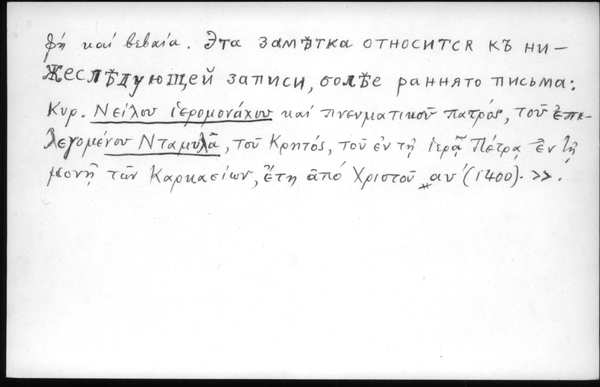 φή καί βεβαία. Эта замѣтка относится къ ни–
жеслѣдующей записи, болѣе раннято письма:
Κυρ. Νείλου ἱερομονάχου καί πνευματικοῦ πατρός, τοῦ ἐπι-
λεγομένου Νταμυλᾶ, τοῦ Κρητός, τοῦ ἐν τῇ ἱερᾷ Πέτρᾳ ἐν τῇ
μονῇ τῶν Καρκασίων, ἔτη ἀπό Χριστοῦ αυ΄ (1400). >>.